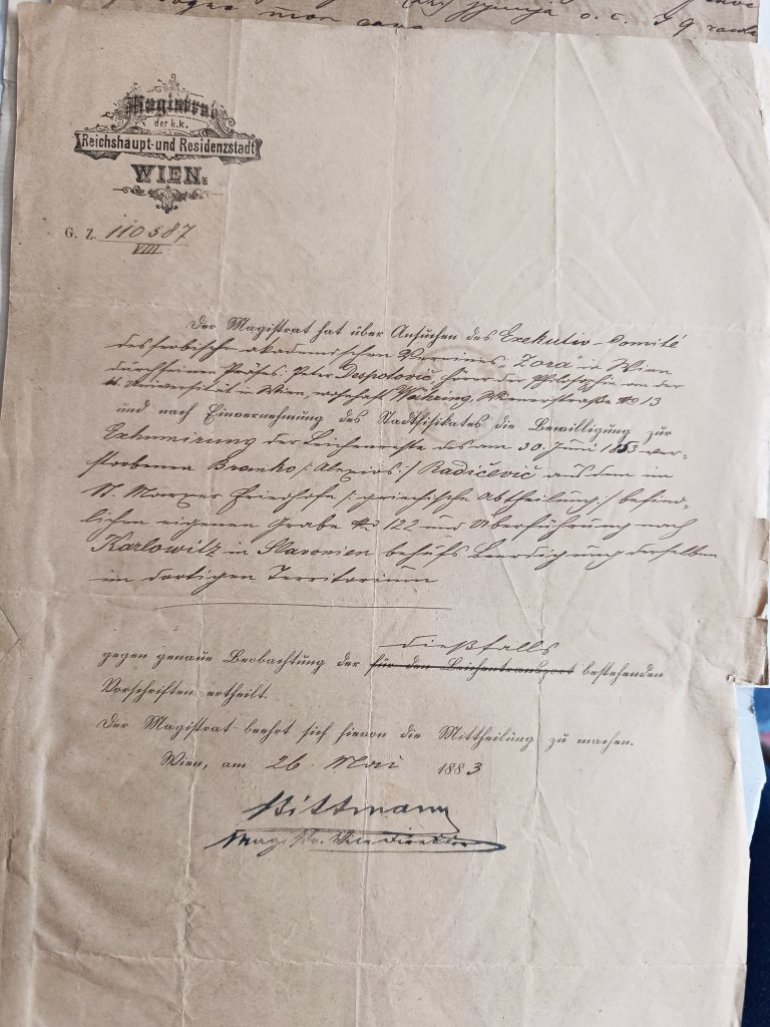 Magistrat
der k.k.
Reichshaupt-und Residenzstadt
WIEN.
G. Z. 110587
VIII
Der Magistrat hat über Ansuchen des Exekutiv-Comité
des serbisch akademischen Vereines „Zora" in Wien
durch seinen Präses: Peter Despotović, Hörer der Philosophie an der
k. k. Universität in Wien, wohnhaft Währing, Wienerstraße No 13
und nach Einvernehmung des Stadtfisikates die Bewilligung zur
Exhumirung der Leichenreste des am 30. Juni 1853 ver-
storbenen Branko /: Alexios :/ Radičević aus dem im
St. Marxer Friedhofe /: griechische Abtheilung :/ befind-
lichen eigenen Grabe No 122 und Überführung nach
Karlowitz in Slavonien behufs Beerdigung derselben
im dortigen Territorium
dießfalls
gegen genaue Beobachtung der für den Leichentransport bestehenden
Vorschriften ertheilt.
Der Magistrat beehrt sich hievon die Mittheilung zu machen.
Wien, am 26. Mai 1883
Bittmann
Mag. Vice Director